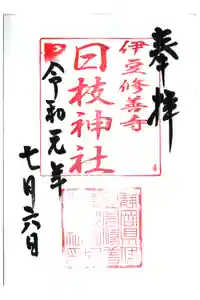 奉拝
伊豆修善寺
日枝神社
令和元年
七月六日